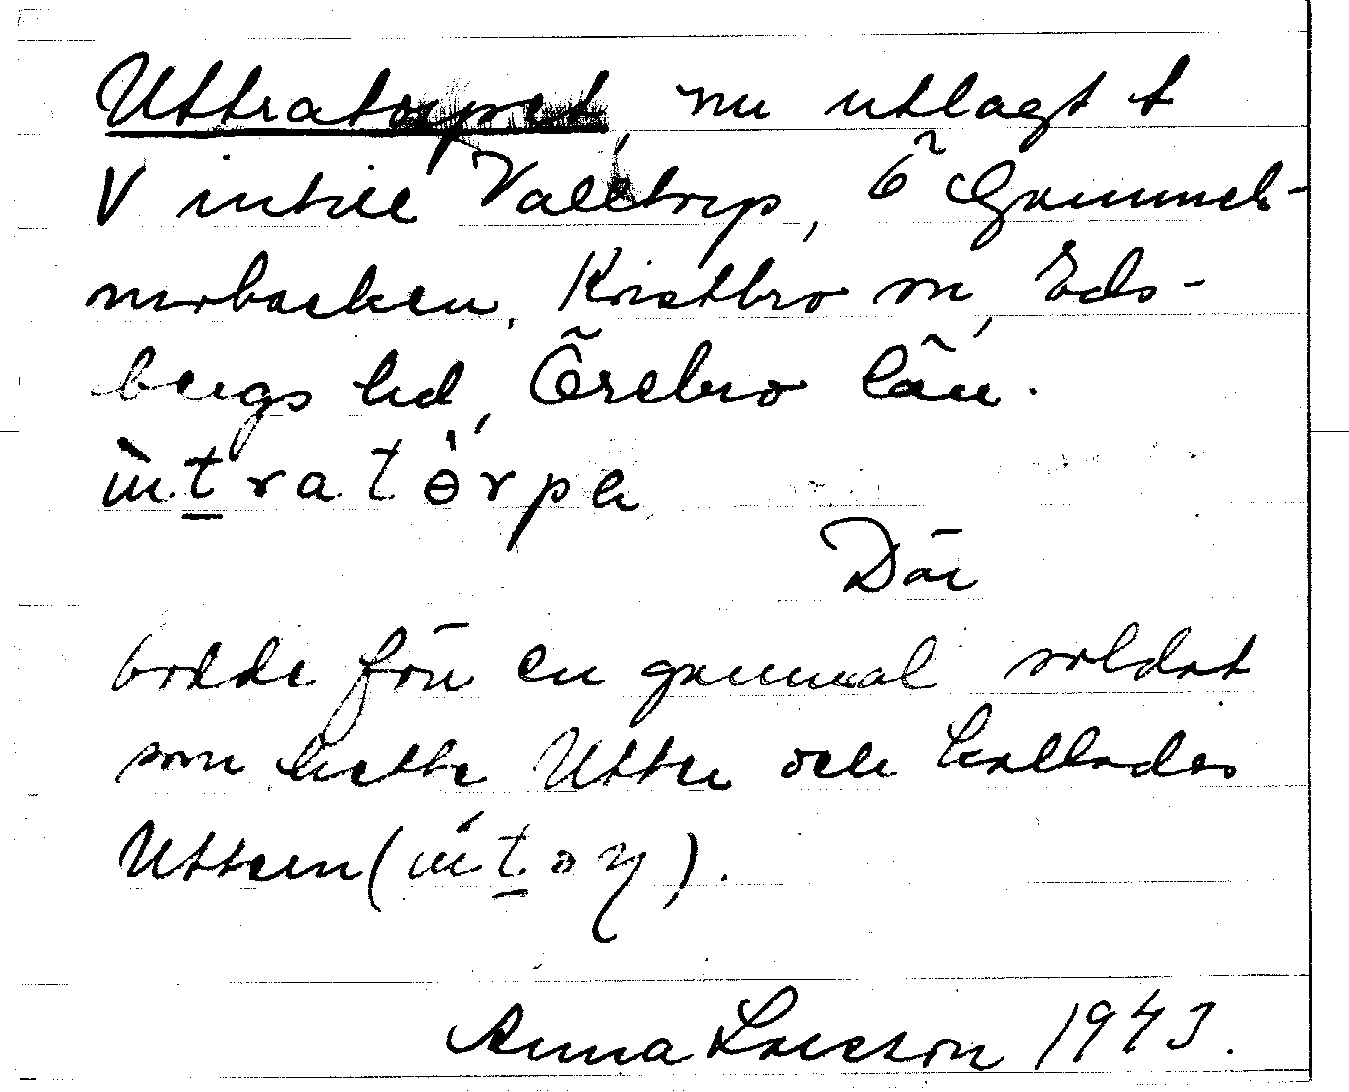 Uttratorpet, nu utlagt t
V intill Valltorp, Ö Gammel-
morbacken, Kvistbro sn, Eds-
bergs hd, Örebro län.
Där
bodde förr en gammal soldat
som hette Utter och kallades
Uttern
Anna Larsson 1943.